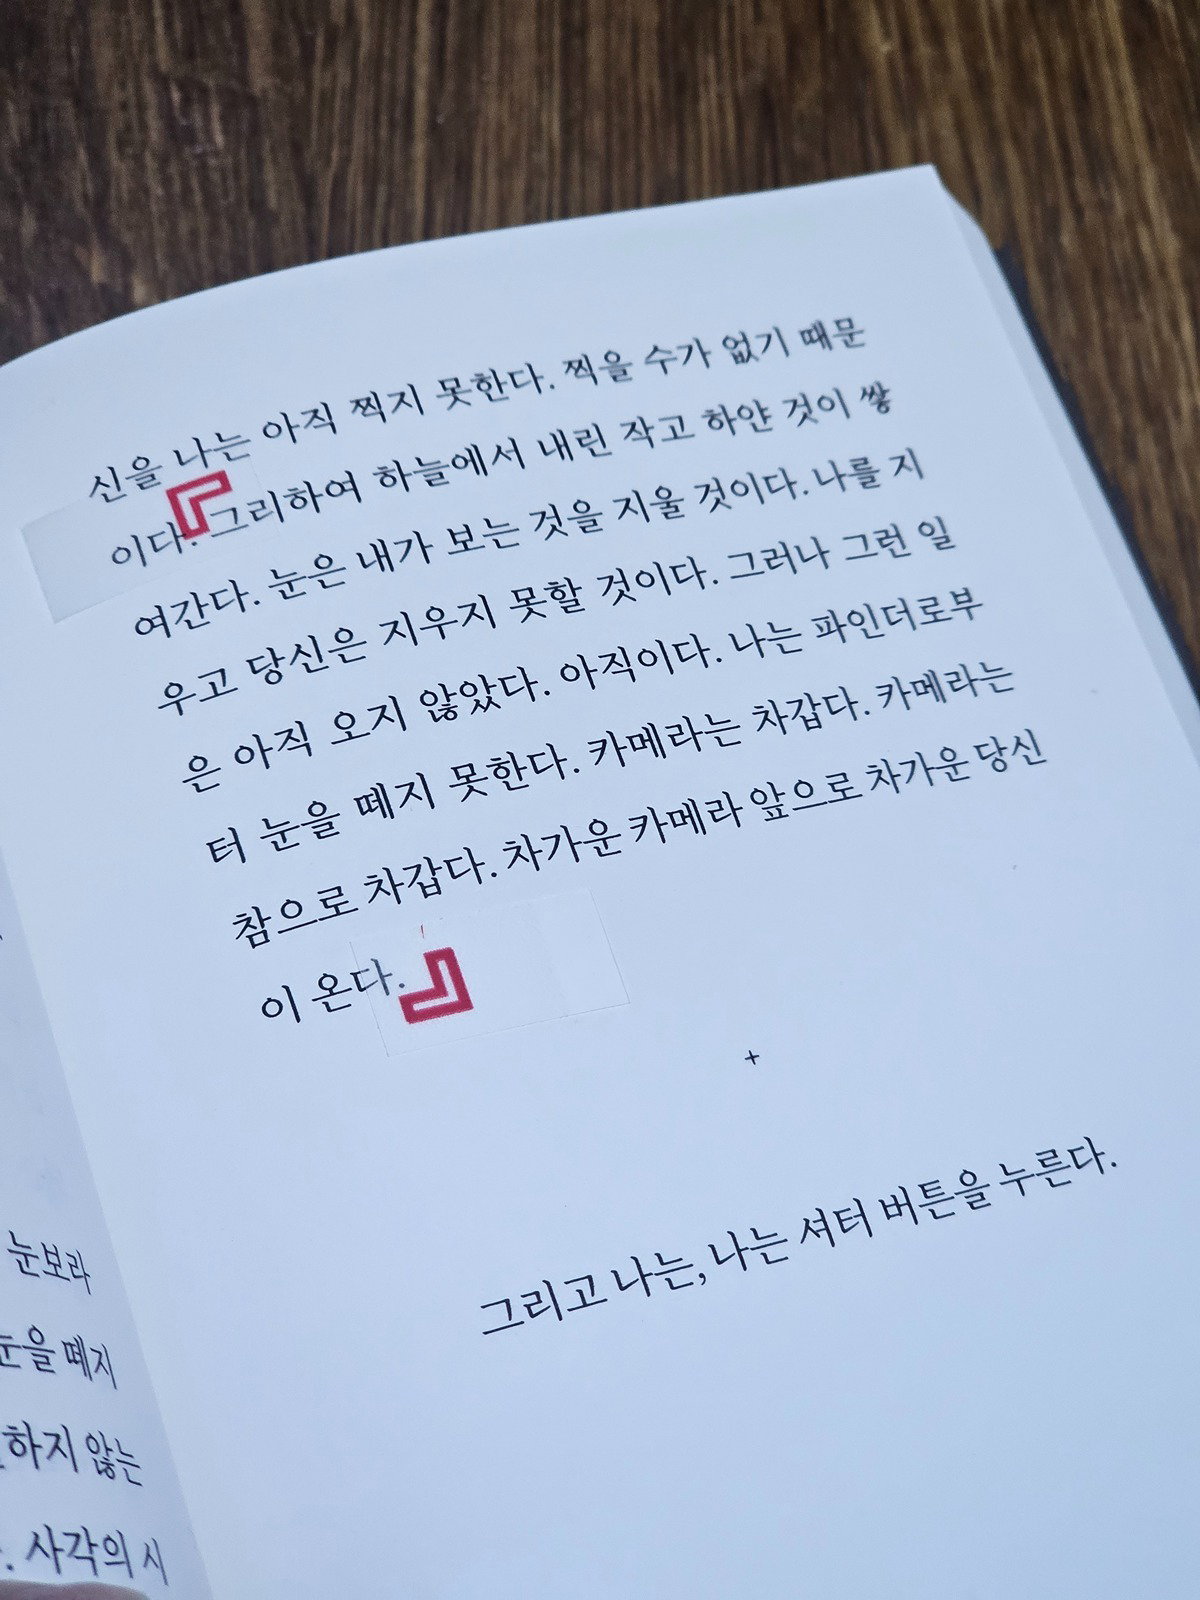 신을 나는 아직 찍지 못한다. 찍을 수가 없기 때문
이다. 그리하여 하늘에서 내린 작고 하얀 것이 쌓
여간다. 눈은 내가 보는 것을 지울 것이다. 나를 지
우고 당신은 지우지 못할 것이다. 그러나 그런 일
은 아직 오지 않았다. 아직이다. 나는 파인더로부
터 눈을 떼지 못한다. 카메라는 차갑다. 카메라는
참으로 차갑다. 차가운 카메라 앞으로 차가운 당신
이 온다.
+
그리고 나는, 나는 셔터 버튼을 누른다.
눈보라
눈을 떼지
하지 않는
사각의 시